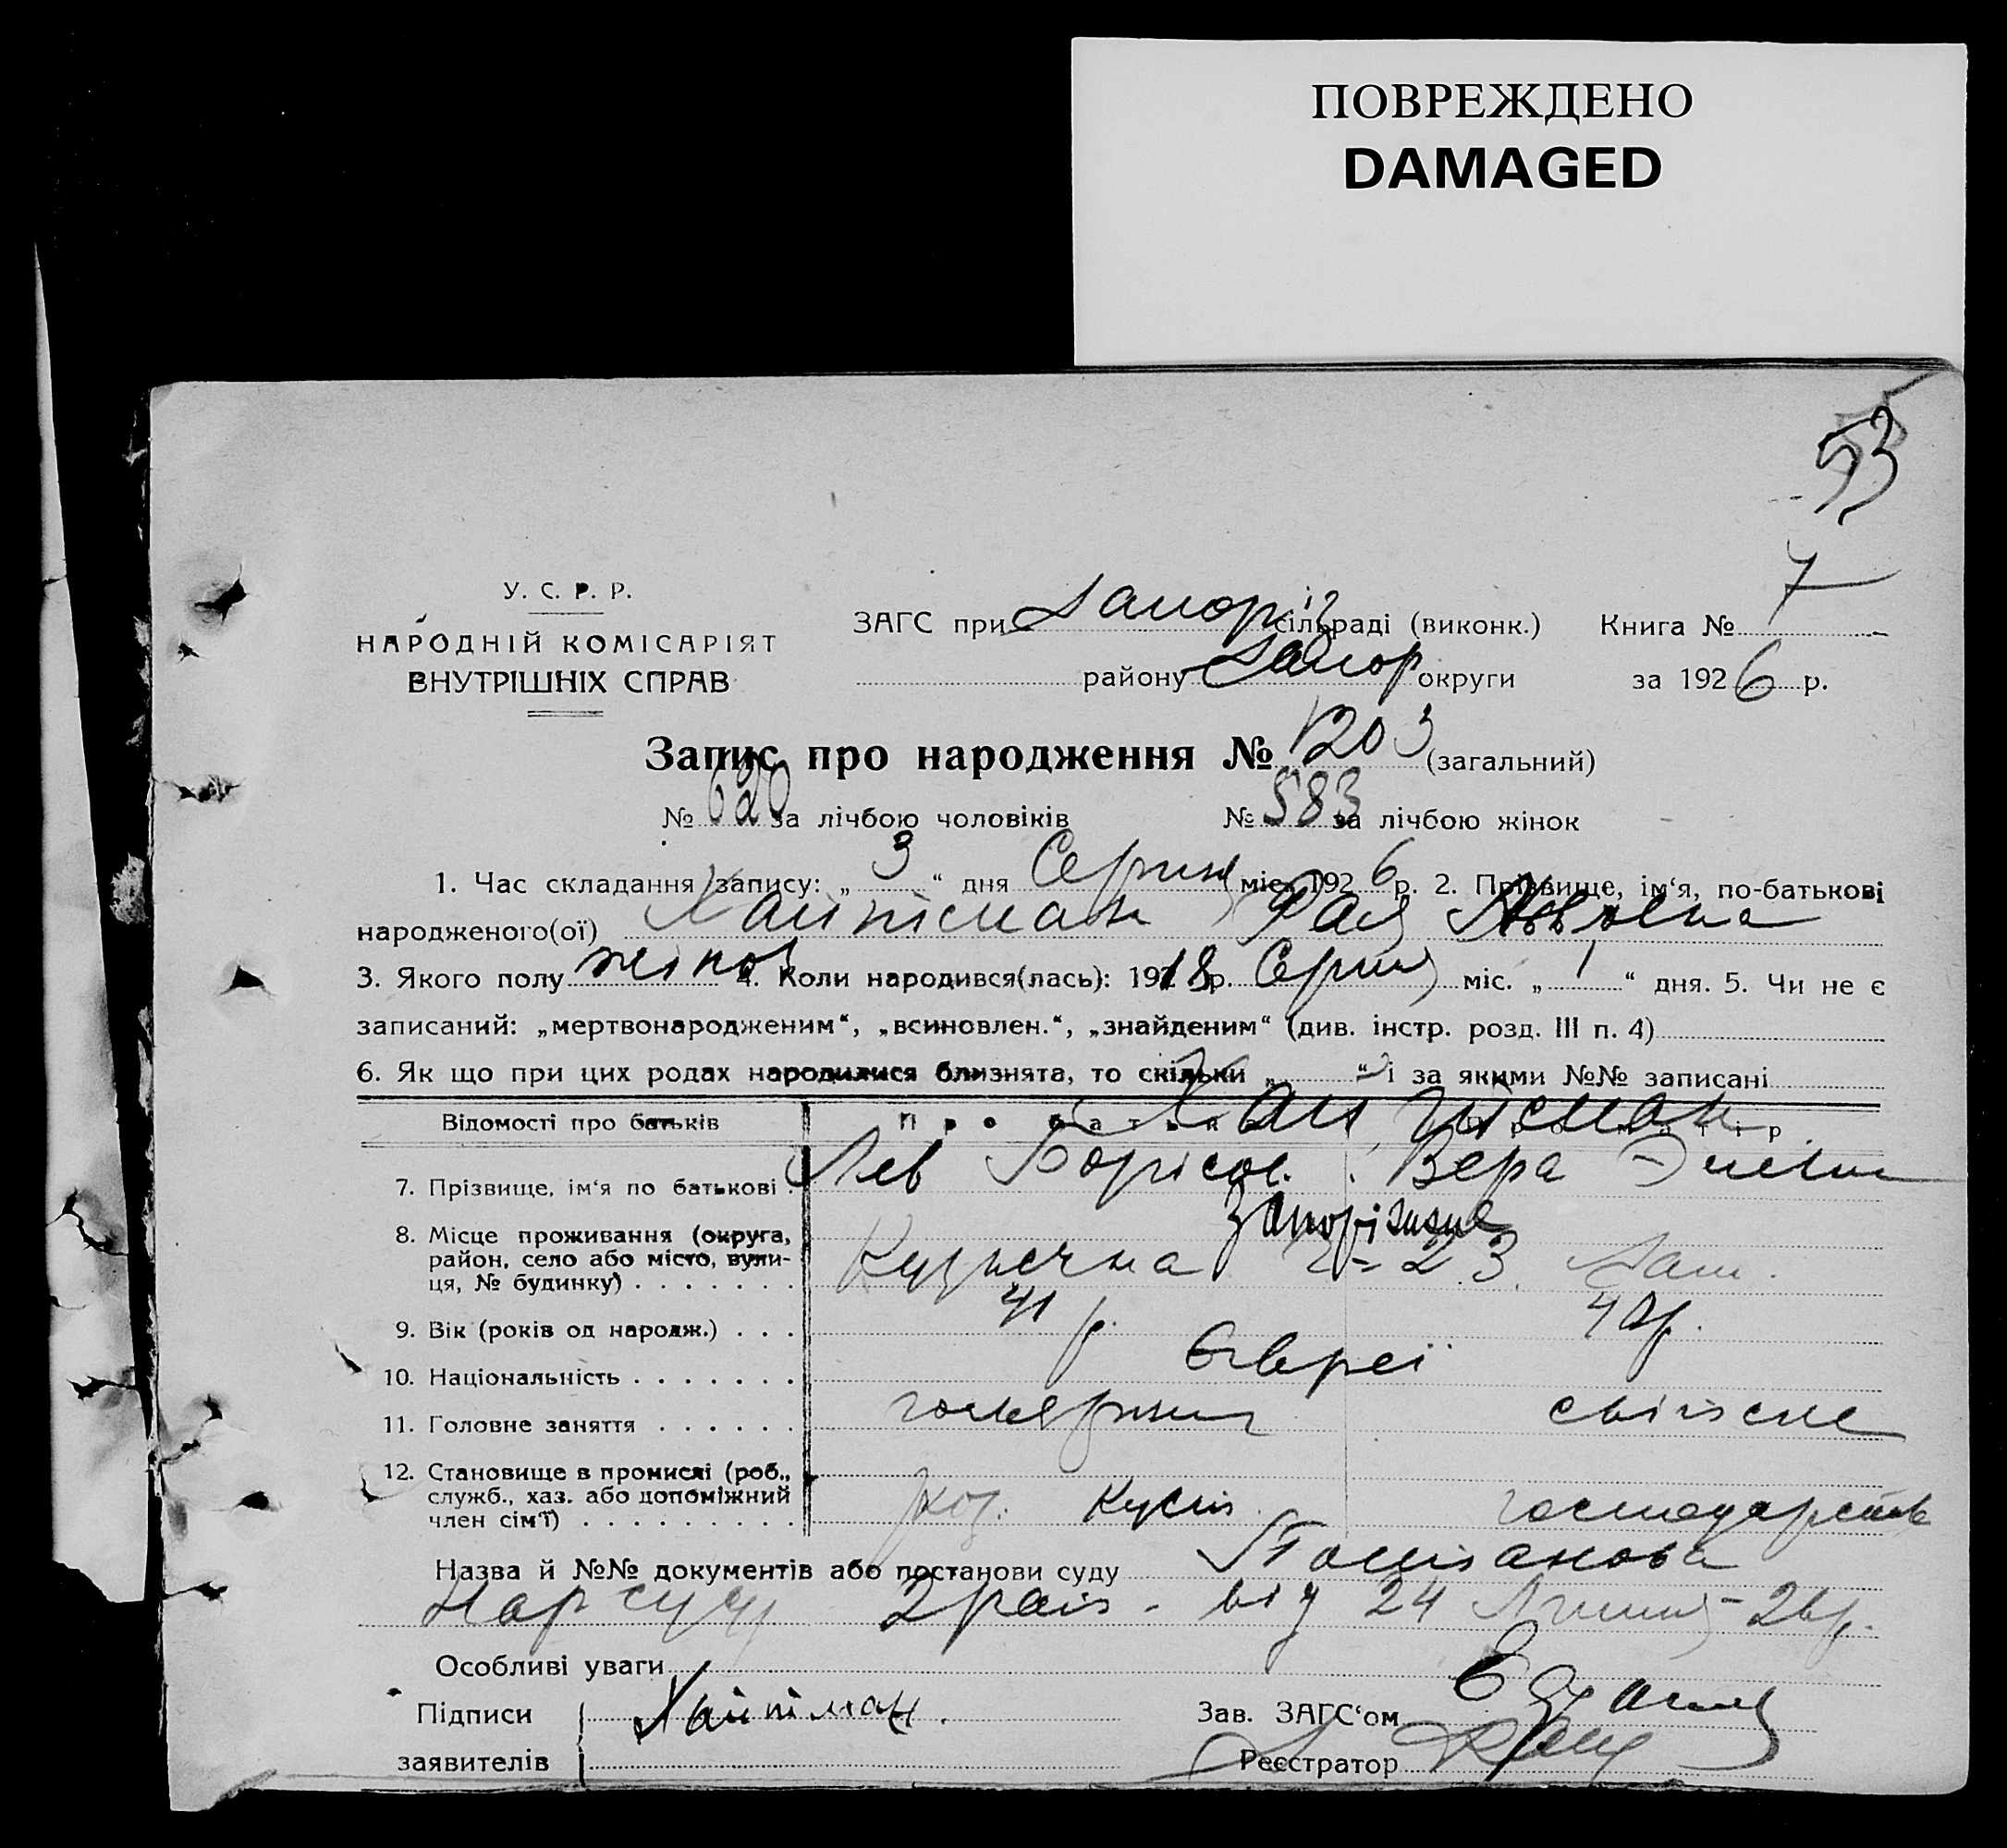 ПОВРЕЖДЕНО
DAMAGED
53
7
У. С. Р. Р.
НАРОДНІЙ КОМІСАРІЯТ
ВНУТРІШНІХ СПРАВ
ЗАГС при Запоріз сільраді (виконк.) Книга №
району Запор округи за 1926 р.
Запис про народження № 1203 (загальний)
№ 620 за лічбою чоловіків № 583 за лічбою жінок
1. Час складання запису: „ 3 “ дня Серпня міс. 1926 р. 2. Прізвище, ім‘я, по-батькові
народженого(ої) Хайтман Рая Львовна
3. Якого полу жіноч 4. Коли народився(лась): 1918 р. Серпня міс. „ 1 “ дня. 5. Чи не є
записаний: „мертвонародженим“, „всиновлен.“, „знайденим“ (див. інстр. розд. III п. 4)
6. Як що при цих родах народилися близнята, то скільки „ “ і за якими №№ записані
Відомості про батьків Про батька Про матір
Хайтман
7. Прізвище, ім‘я по батькові Лев Борісов. Вера
Запоріжжя
8. Місце проживання (округа,
район, село або місто, вули-
ця, № будинку) Кузнечна 23
9. Вік (років од народж.) 41 р. 40 р.
10. Національність Євреї
11. Головне заняття
12. Становище в промислі (роб.,
служб., хаз. або допоміжний
член сім‘ї) хоз.
Назва й №№ документів або постанови суду Постанова
Нарсуду 2 рай. від 24 Липня 26 р.
Особливі уваги
Підписи Хайтман. Зав. ЗАГС‘ом
заявителів Реєстратор